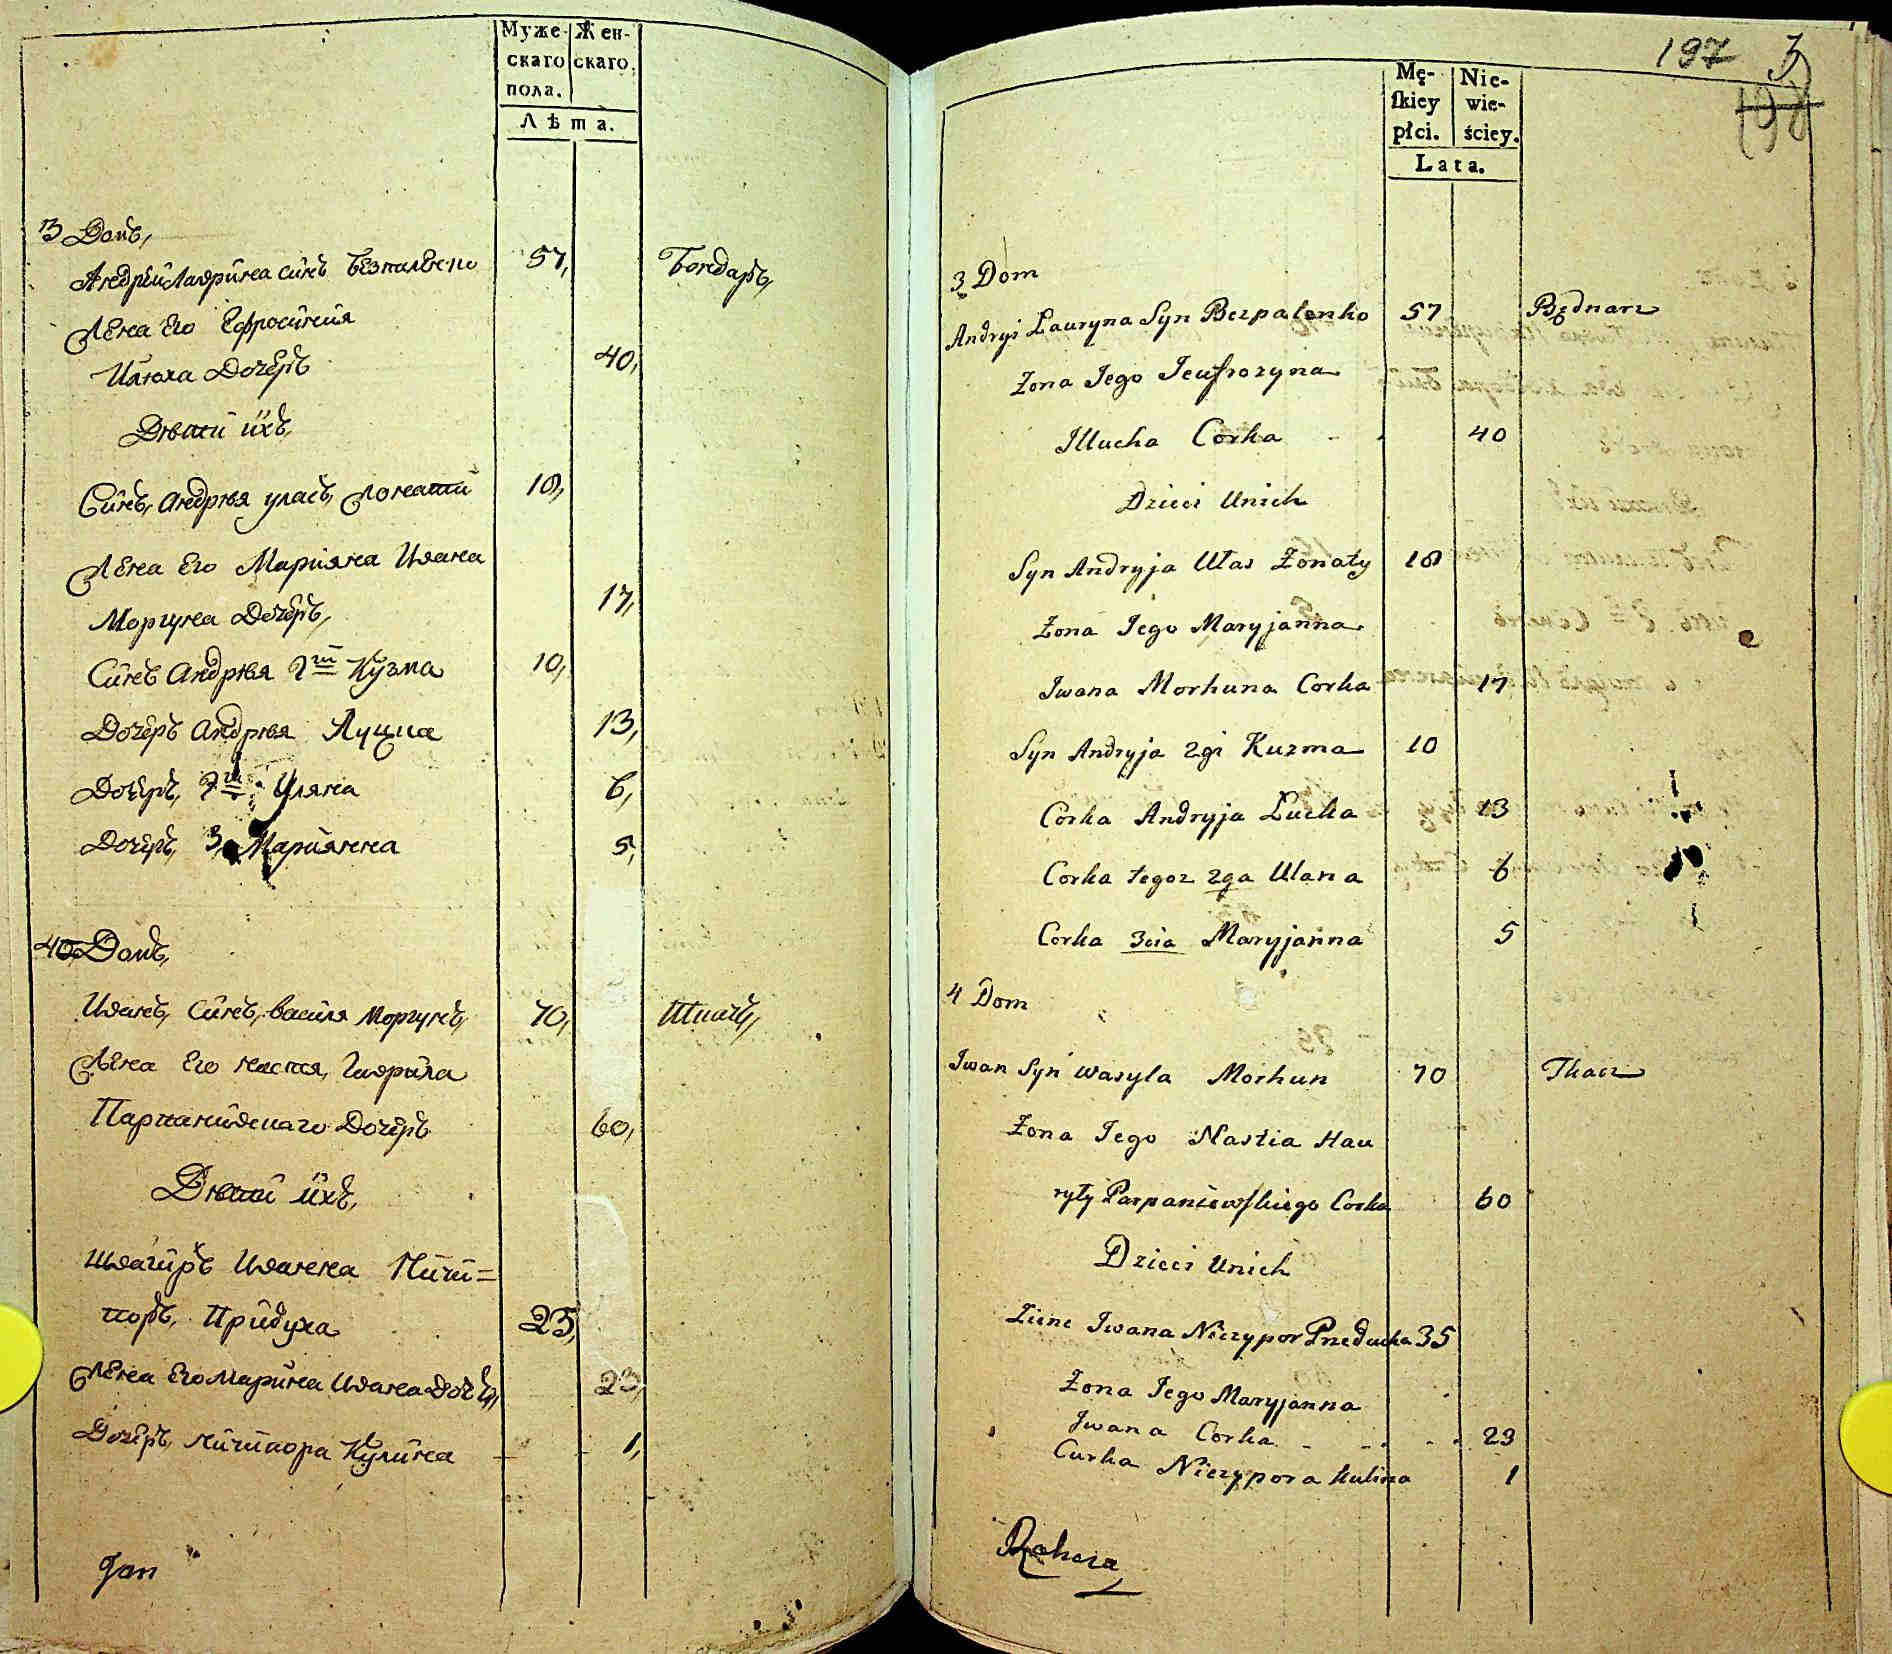 Муже-
скаго
пола.
Жен-
скаго.
Лѣта.
3 Домъ,
Андрѣй Лаврина синъ Безпаленко 57, Бондаръ,
Жена Его Ефросиния
Илюха Дочеръ 40,
Дѣти ихъ,
Синъ, Андрѣя уласъ, жонати 18,
Жена Его Марияна Ивана
Моргуна Дочеръ, 17,
Синъ Андрѣя 2й Кузма 10,
Дочеръ Андрѣя Луциа 13,
Дочеръ, 2я Уляна 6,
Дочеръ, 3, Марианна 5,
4 Домъ,
Иванъ, Синъ, Василя Моргунъ, 70, Ткачъ,
Жена Его настя, Гаврила
Парпанивскаго Дочеръ 60,
Дѣти ихъ,
швагиръ Иванна Ничи=
поръ, Придуха 25,
Жена Его Марина Ивана Дочъ, 23,
Дочеръ, ничипора Кулина 1,
Jan
197 3
198
Mę-
skiey
płci.
Nie-
wie-
ściey.
Lata.
3 Dom
Andryi Lauryna Syn Bezpalenko 57 Będnarz
Żona Jego Jeufrozyna
Illucha Corka 40
Dzieci Unich
Syn Andryja Ułas Żonaty 18
Żona Jego Maryjanna
Iwana Morhuna Corka 17
Syn Andryja 2gi Kuzma 10
Corka Andryja Łucka 13
Corka tegoz 2ga Ulana 6
Corka 3cia Maryjanna 5
4 Dom
Iwan Syn Wasyla Morhun 70 Tkacz
Żona Jego Nastia Hau
ryły Parpaniewskiego Corka 60
Dzieci Unich
Zienc Iwana Niczypor Prueducha 35
Żona Jego Maryjanna
Iwana Corka 23
Curka Niczypora Kulina 1